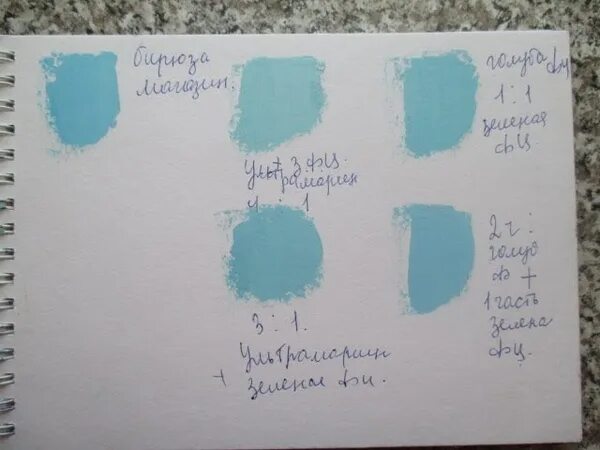 бирюза
магазин.
голуба фц
1 : 1
зеленая
фц
ульт з фц.
ультрамарин
1 : 1
2 ч :
голуб
ф +
1 часть
зелена
фц.
3 : 1.
ультрамарин
+ зеленая фц.